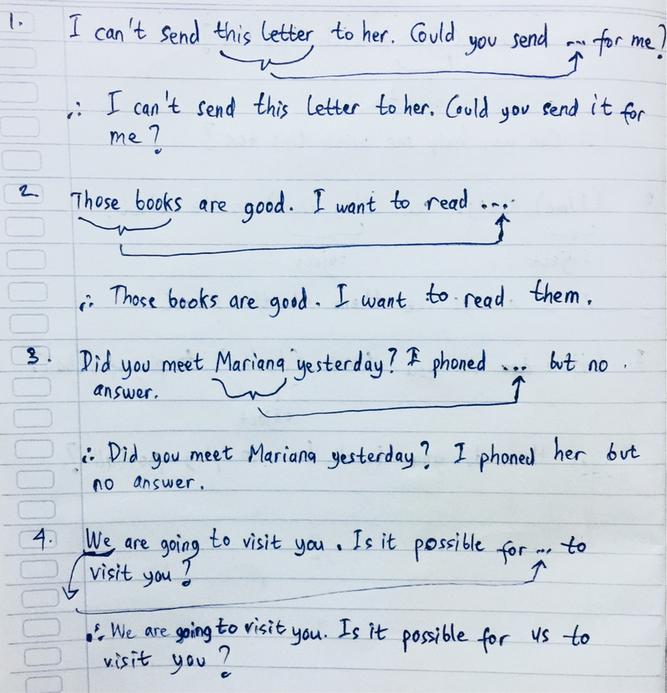 1. I can't send this letter to her. Could you send ... for me?
∴ I can't send this letter to her. Could you send it for
me?
2 Those books are good. I want to read ....
∴ Those books are good. I want to read them.
3. Did you meet Mariana yesterday? I phoned ... but no
answer.
∴ Did you meet Mariana yesterday? I phoned her but
no answer.
4. We are going to visit you. Is it possible for ... to
visit you?
∴ We are going to visit you. Is it possible for us to
visit you?